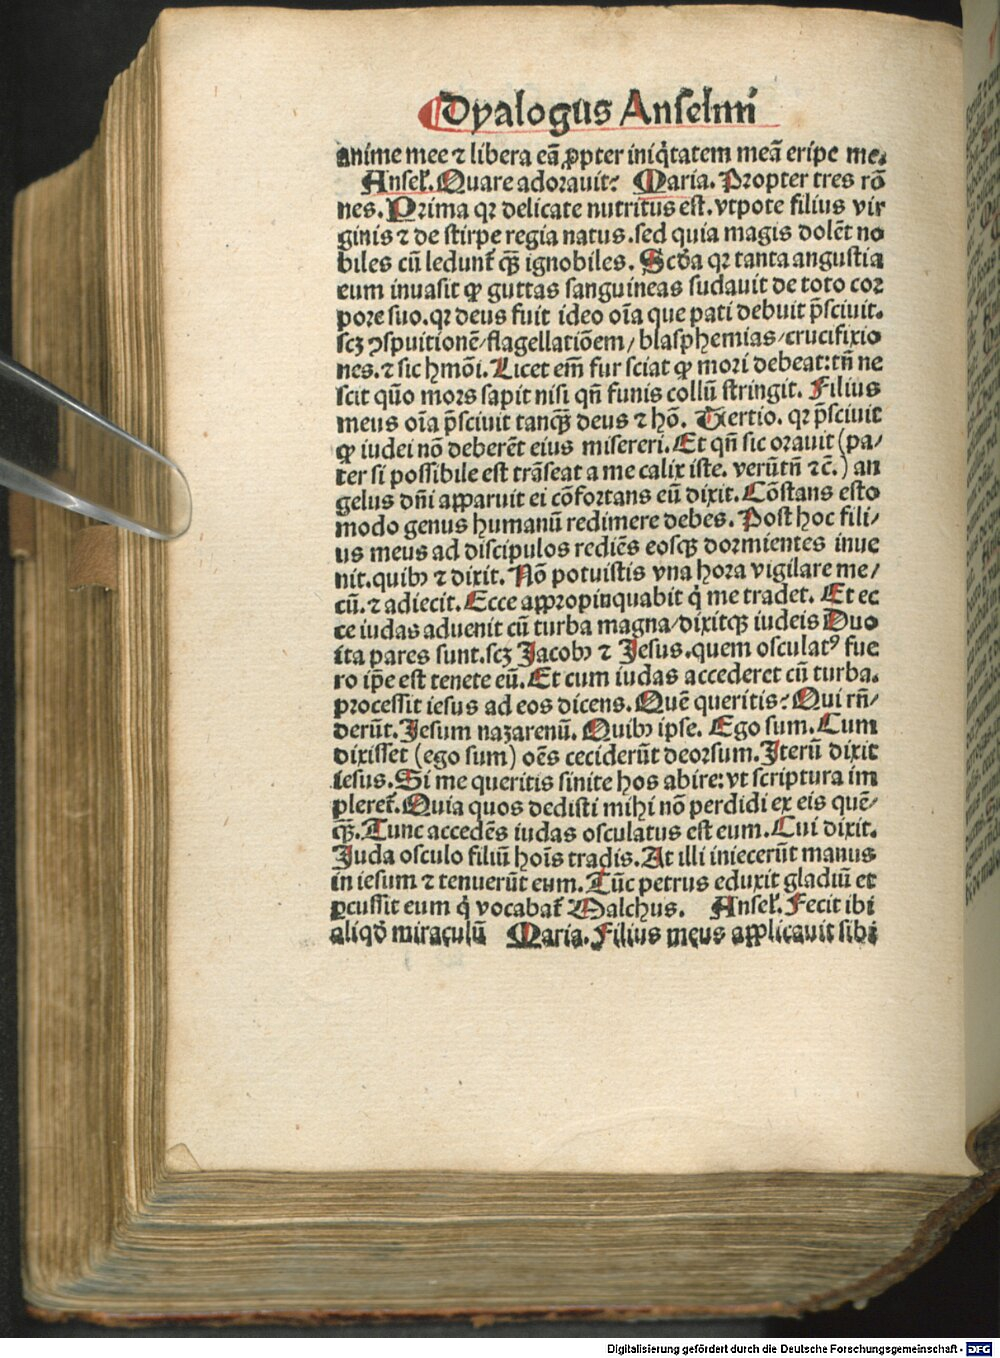 Dyalogus Anselmi
anime mee ⁊ libera eã ꝓpter iniq̃tatem meã eripe me.
Ansel̃. Quare adorauit? Maria. Propter tres rõ
nes. Prima qꝛ delicate nutritus est. vtpote filius vir
ginis ⁊ de stirpe regia natus. sed quia magis dolẽt no
biles cũ ledunt̃ qᷓꝫ ignobiles. Scd̃a qꝛ tanta angustia
eum inuasit ꝙ guttas sanguineas sudauit de toto coꝛ
pore suo. qꝛ deus fuit ideo oĩa que pati debuit p̃sciuit.
scꝫ ꝯspuitionẽ/flagellatiõem/blasphemias/crucifixio
nes. ⁊ sic hmõi. Licet em̃ fur sciat ꝙ mori debeat: tñ ne
scit quõ mors sapit nisi qñ funis collũ stringit. Filius
meus oĩa p̃sciuit tanqᷓꝫ deus ⁊ hõ. Tertio. qꝛ p̃sciuit
ꝙ iudei nõ deberẽt eius misereri. Et qñ sic orauit (pa/
ter si possibile est trãseat a me calix iste. verũtñ ⁊c̃.) an
gelus dñi apparuit ei cõfortans eũ dixit. Cõstans esto
modo genus humanũ redimere debes. Post hoc fili/
us meus ad discipulos rediẽs eosqꝫ dormientes inue
nit. quibꝰ ⁊ dixit. Nõ potuistis vna hora vigilare me/
cũ. ⁊ adiecit. Ecce appropinquabit q̇ me tradet. Et ec
ce iudas aduenit cũ turba magna/dixitqꝫ iudeis Duo
ita pares sunt. scꝫ Jacobꝰ ⁊ Jesus. quem osculatꝰ fue
ro ip̃e est tenete eũ. Et cum iudas accederet cũ turba.
processit iesus ad eos dicens. Quẽ queritis? Qui rñ/
derũt. Jesum nazarenũ. Quibꝰ ipse. Ego sum. Cum
dixisset (ego sum) oẽs ceciderũt deorsum. Iterũ dixit
iesus. Si me queritis sinite hos abire: vt scriptura im
pleret̃. Quia quos dedisti mihi nõ perdidi ex eis quẽ/
qᷓꝫ. Tunc accedẽs iudas osculatus est eum. Cui dixit.
Juda osculo filiũ hoĩs tradis. At illi iniecerũt manus
in iesum ⁊ tenuerũt eum. Tũc petrus eduxit gladiũ et
ꝑcussit eum q̇ vocabat̃ Malchus. Ansel̃. Fecit ibi
aliqd̃ miraculũ Maria. Filius meus applicauit sibi
Digitalisierung gefördert durch die Deutsche Forschungsgemeinschaft - DFG